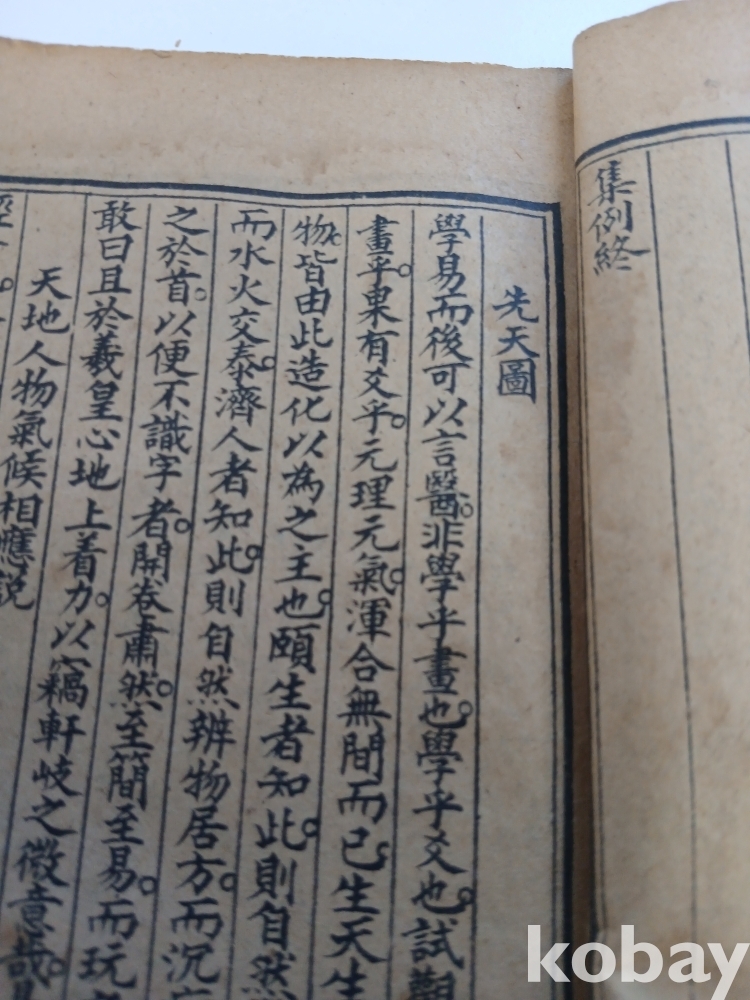 集例終
先天圖
學易而後可以言醫。非學乎畫也。學乎爻也。試觀
畫乎。果有爻乎。元理元氣。渾合無間而已。生天生
物。皆由此造化以為之主也。頤生者知此。則自然
而水火交泰。濟人者知此。則自然辨物居方。而沉
之於首。以便不識字者。開卷肅然。至簡至易。而玩
敢曰且於羲皇心地上着力。以竊軒岐之微意哉。
天地人物氣候相應說
kobay